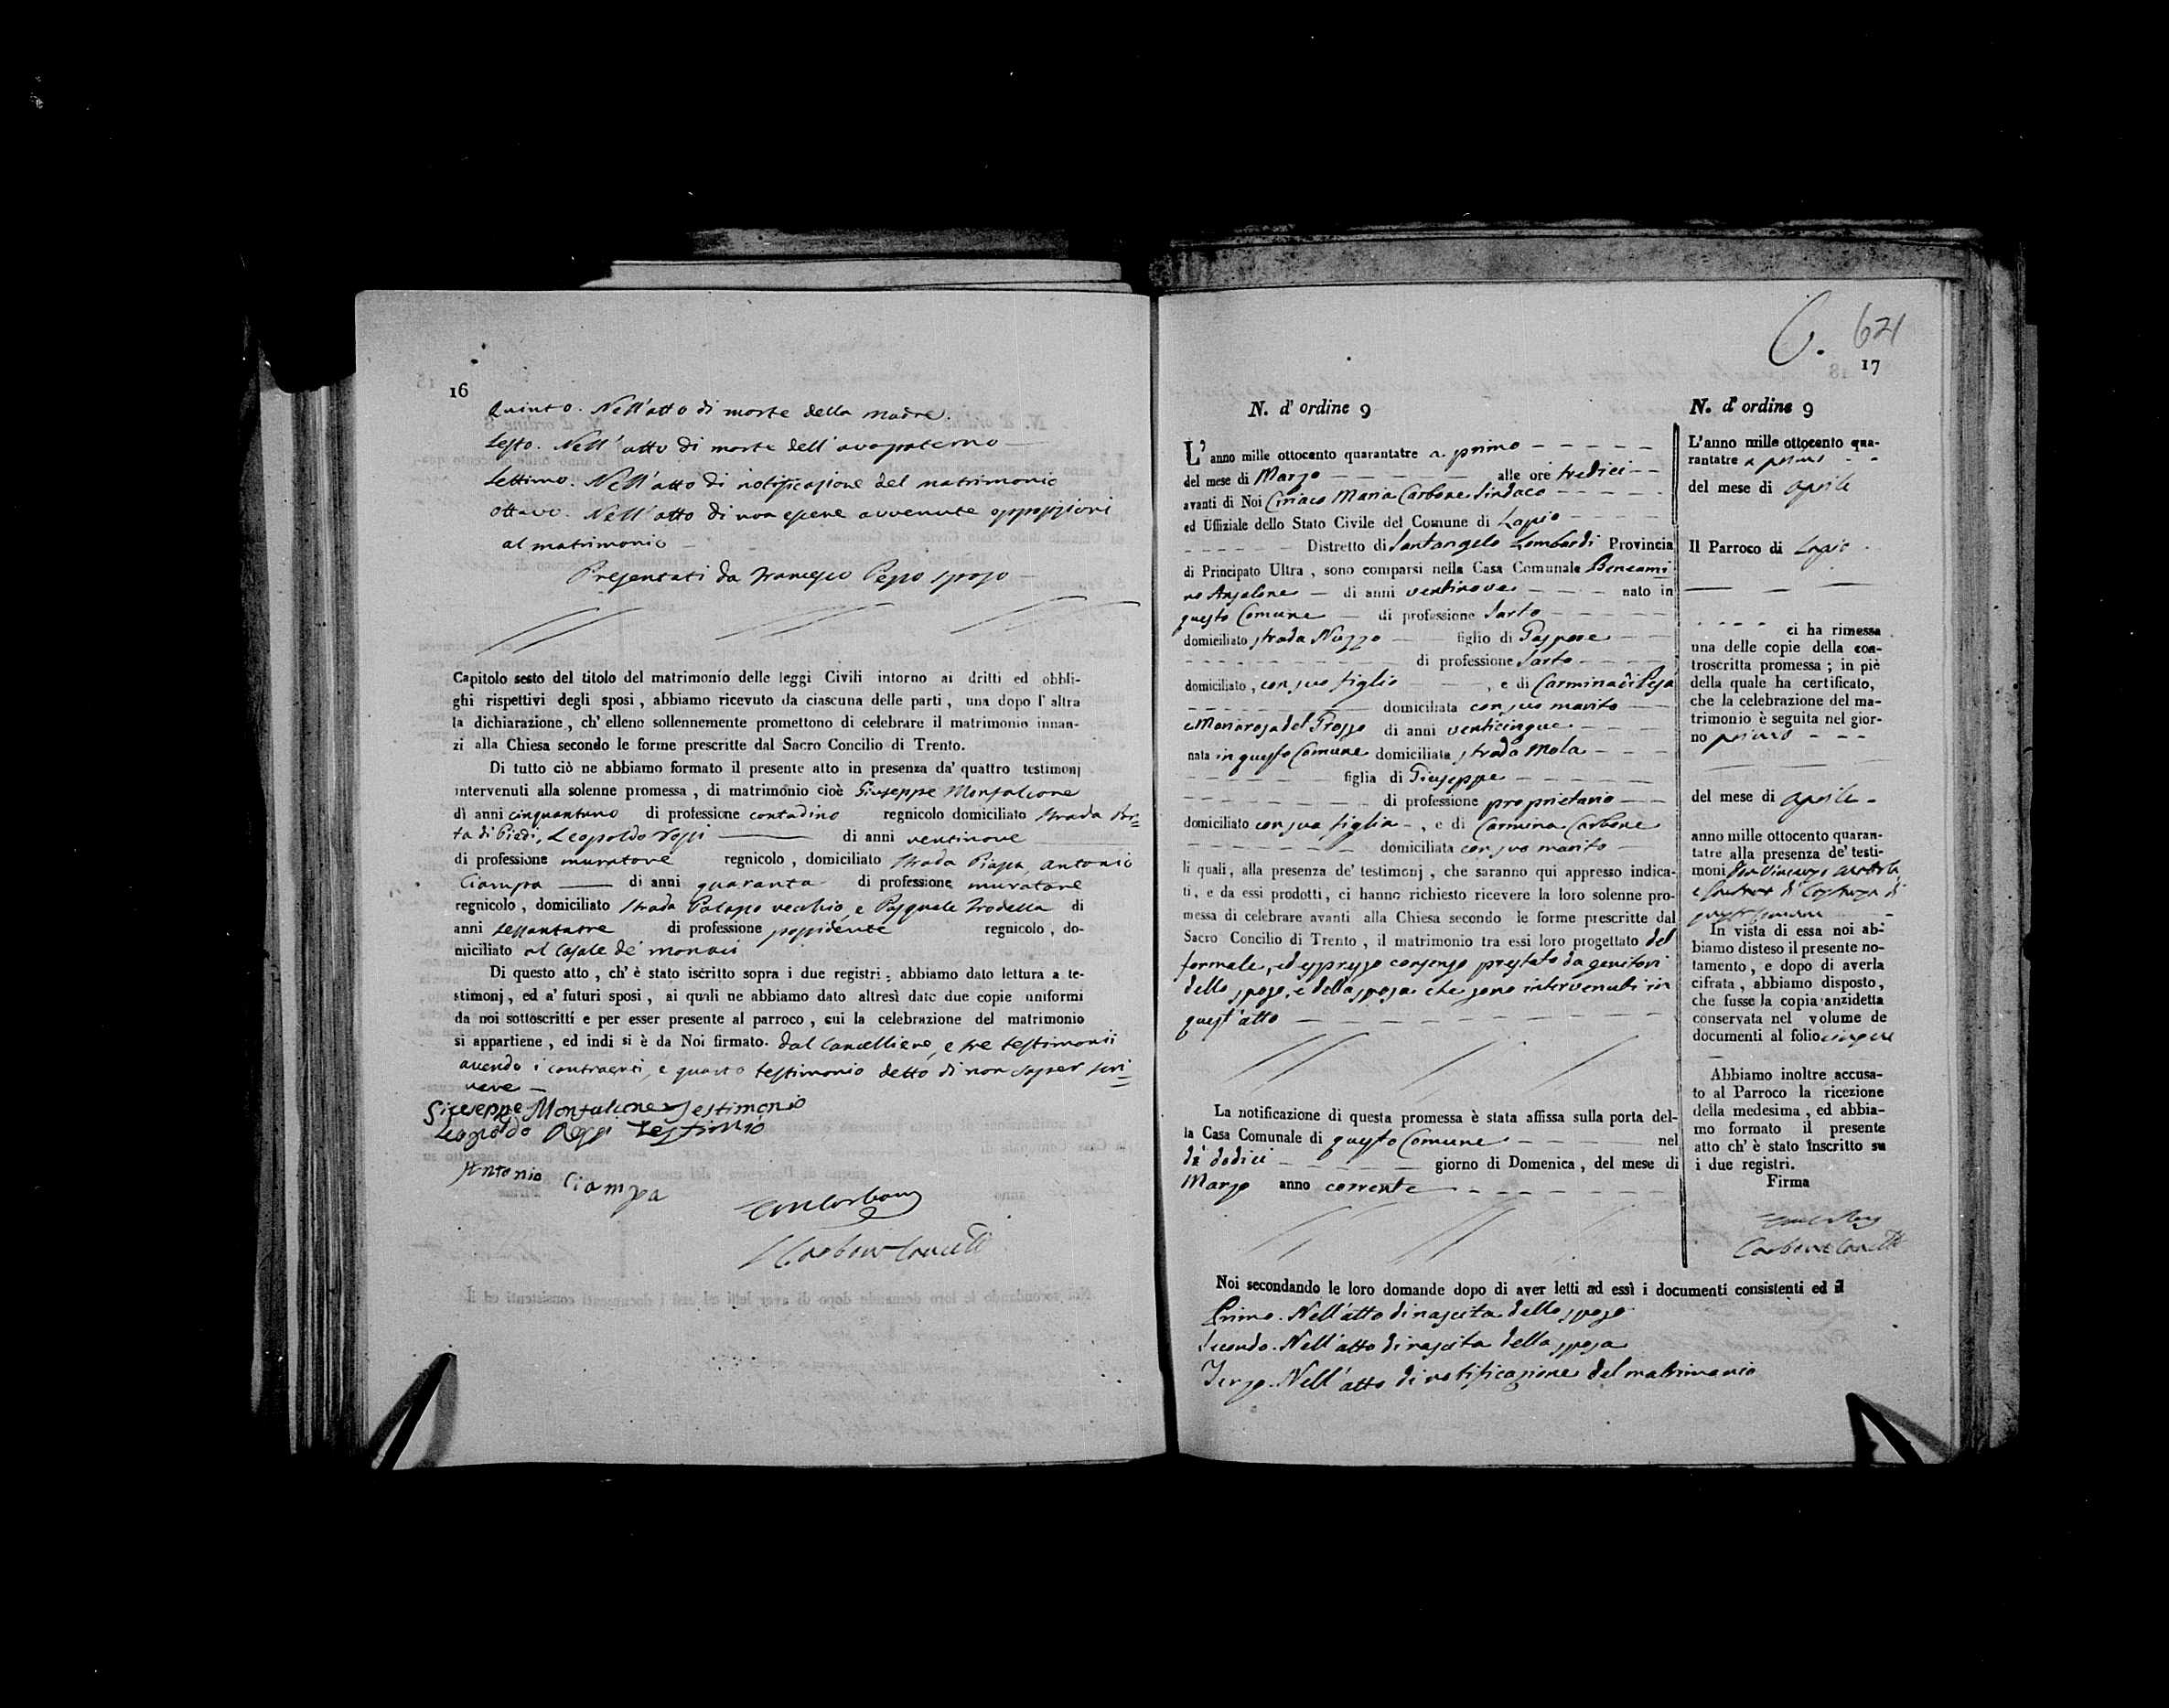 16
Quinto. Nell'atto di morte della madre.
Sesto. Nell'atto di morte dell'avo paterno
Settimo. Nell'atto di notificazione del matrimonio
Ottavo. Nell'atto di non essere avvenute opposizioni
al matrimonio
Presentati da Francesco Peppo sposo
Capitolo sesto del titolo del matrimonio delle leggi Civili intorno ai dritti ed obbli-
ghi rispettivi degli sposi, abbiamo ricevuto da ciascuna delle parti, una dopo l'altra
la dichiarazione, ch'elleno sollennemente promettono di celebrare il matrimonio innan-
zi alla Chiesa secondo le forme prescritte dal Sacro Concilio di Trento.
Di tutto ciò ne abbiamo formato il presente atto in presenza da' quattro testimonj
intervenuti alla solenne promessa, di matrimonio cioè Giuseppe Monfalcone
di anni cinquantuno di professione contadino regnicolo domiciliato strada Por=
ta di Piedi, Leopoldo Rossi di anni ventinove
di professione muratore regnicolo, domiciliato strada Piazza, Antonio
Ciampa di anni quaranta di professione muratore
regnicolo, domiciliato strada Palazzo vecchio, e Pasquale Trodella di
anni sessantatre di professione possidente regnicolo, do-
miciliato al Casale de' monaci
Di questo atto, ch'è stato iscritto sopra i due registri; abbiamo dato lettura a te-
stimonj, ed a' futuri sposi, ai quali ne abbiamo dato altresì date due copie uniformi
da noi sottoscritti e per esser presente al parroco, cui la celebrazione del matrimonio
si appartiene, ed indi si è da Noi firmato. dal Cancelliere, e tre testimonii
avendo i contraenti, e quarto testimonio detto di non saper scri=
vere
Giuseppe Monfalcone Testimonio
Leopoldo Rossi Testimonio
Antonio Ciampa
Carbone Cancell
621
17
N. d'ordine 9
L'anno mille ottocento quarantatre a primo
del mese di Marzo alle ore tredici
avanti di Noi Ciriaco Maria Carbone Sindaco
ed Uffiziale dello Stato Civile del Comune di Lapio
Distretto di Santangelo Lombardi Provincia
di Principato Ultra, sono comparsi nella Casa Comunale Beneami
no Anzalone di anni ventinove nato in
questo Comune di professione Sarto
domiciliato strada Nuzzo figlio di Gaspare
di professione Sarto
domiciliato, con suo figlio, e di Carmina di Pesa
domiciliata con suo marito
e Mariarosa del Grosso di anni venticinque
nata in questo Comune domiciliata strada Mola
figlia di Giuseppe
di professione proprietario
domiciliato con sua figlia, e di Carmina Carbone
domiciliata con suo marito
li quali, alla presenza de' testimonj, che saranno qui appresso indica-
ti, e da essi prodotti, ci hanno richiesto ricevere la loro solenne pro-
messa di celebrare avanti alla Chiesa secondo le forme prescritte dal
Sacro Concilio di Trento, il matrimonio tra essi loro progettato del
formale, ed espresso consenso prestato da genitori
dello sposo, e della sposa che sono intervenuti in
quest'atto
La notificazione di questa promessa è stata affissa sulla porta del-
la Casa Comunale di questo Comune nel
dì dodici giorno di Domenica, del mese di
Marzo anno corrente
N. d'ordine 9
L'anno mille ottocento qua-
rantatre a primo
del mese di aprile
Il Parroco di Lapio
ci ha rimessa
una delle copie della con-
troscritta promessa; in piè
della quale ha certificato,
che la celebrazione del ma-
trimonio è seguita nel gior-
no primo
del mese di aprile
anno mille ottocento quaran-
tatre alla presenza de' testi-
moni Don Vincenzo
di
questo Comune
In vista di essa noi ab-
biamo disteso il presente no-
tamento, e dopo di averla
cifrata, abbiamo disposto,
che fusse la copia anzidetta
conservata nel volume de
documenti al folio cinque
Abbiamo inoltre accusa-
to al Parroco la ricezione
della medesima, ed abbia-
mo formato il presente
atto ch'è stato inscritto su
i due registri.
Firma
Carbone Cancell
Noi secondando le loro domande dopo di aver letti ad essi i documenti consistenti ed il
Primo. Nell'atto di nascita dello sposo
Secondo. Nell'atto di nascita della sposa
Terzo. Nell'atto di notificazione del matrimonio